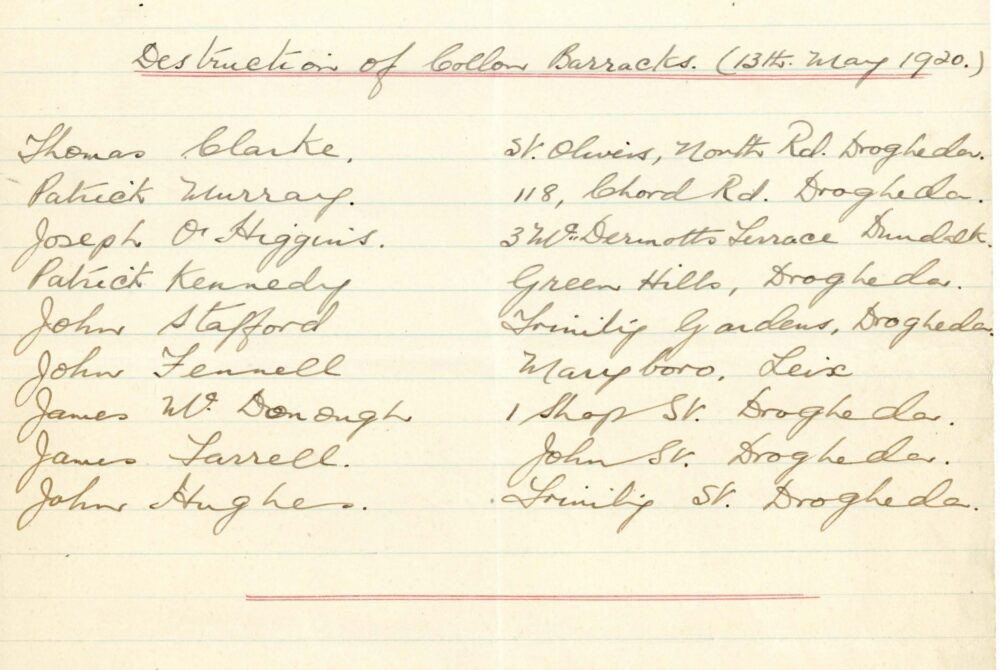 Destruction of Collon Barracks. (13th. May 1920.)
Thomas Clarke. St. Olivers, North Rd. Drogheda.
Patrick Murray. 118, Chord Rd. Drogheda.
Joseph O'Higgins. 3 Mc. Dermotts Terrace Dundalk.
Patrick Kennedy Green Hills, Drogheda.
John Stafford Trinity Gardens, Drogheda.
John Fennell Maryboro, Leix
James Mc. Donough 1 Shop St. Drogheda.
James Farrell. John St. Drogheda.
John Hughes. Trinity St. Drogheda.